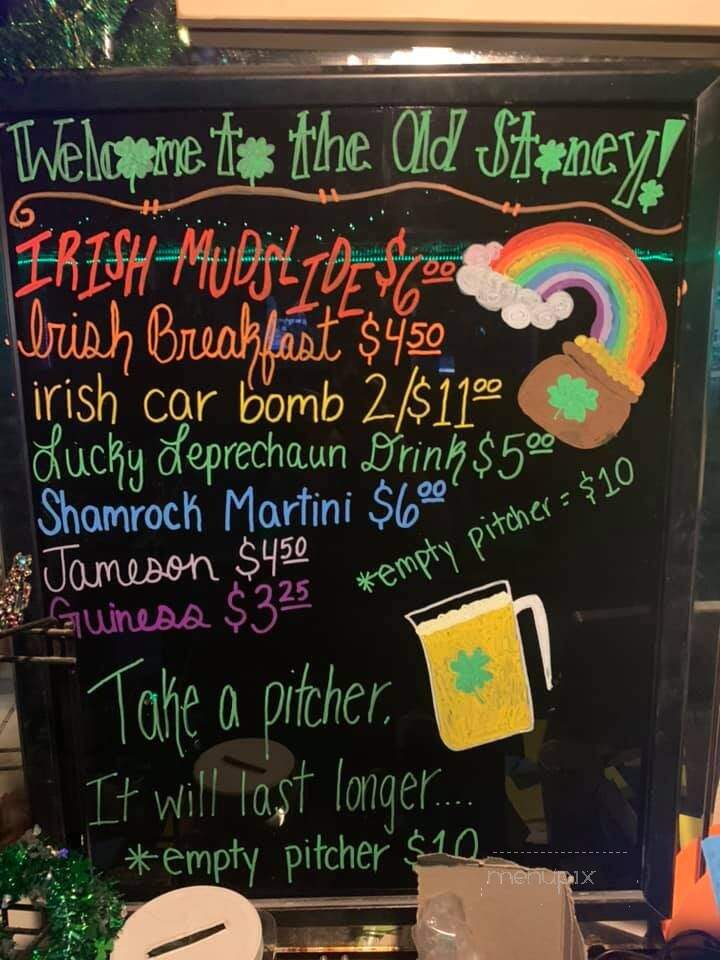 Welcome to the Old Stoney!
IRISH MUDSLIDE $6.00
Irish Breakfast $4.50
irish car bomb 2/$11.00
Lucky Leprechaun Drink $5.00
Shamrock Martini $6.00
Jameson $4.50
Guiness $3.25
*empty pitcher = $10
Take a pitcher,
It will last longer....
*empty pitcher $10
menupix